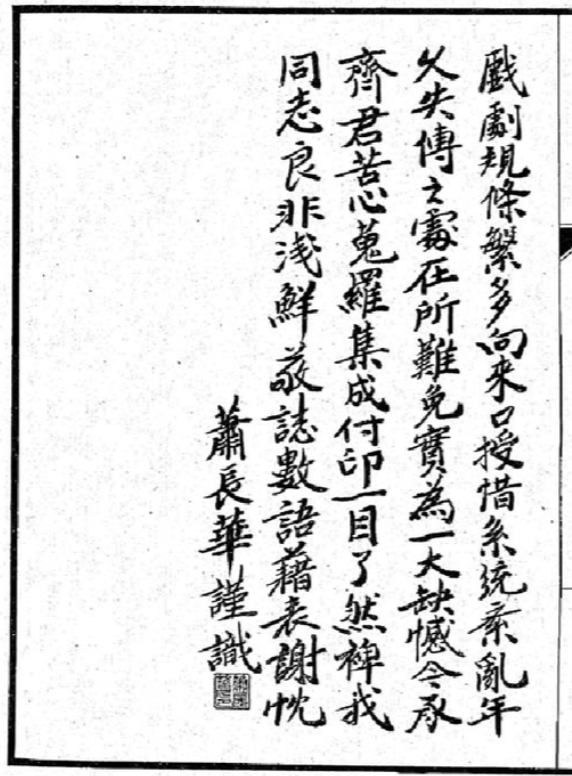 戲劇規條繁多向來口授惜系統紊亂年
久失傳之處在所難免實為一大缺憾今承
齊君苦心蒐羅集成付印一目了然裨我
同志良非淺鮮敬誌數語藉表謝忱
蕭長華謹識